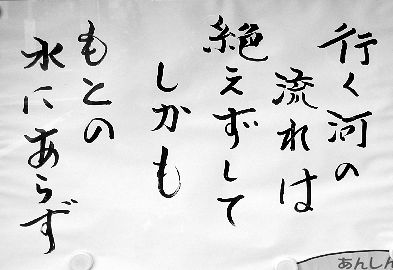 行く河の
流れは
絶えずして
しかも
もとの
水にあらず
あんしん